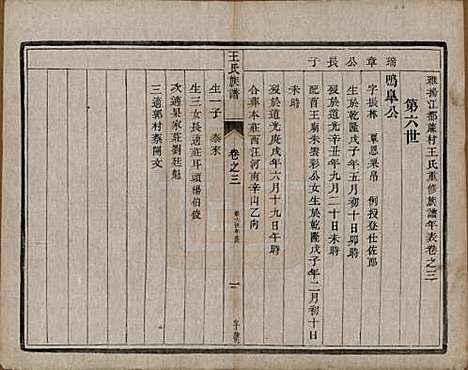 維揚江都蕭村王氏重修族譜年表卷之三
第六世
瑞章公長子
鳴皋公
字振林 覃恩業吊 例授登仕佐郎
生於乾隆戊子年五月初十日卯時
歿於道光辛丑年九月二十日未時
配酉王廟朱雲彩公女生於乾隆戊子年二月初十日
未時
歿於道光庚戌年六月十九日午時
合葬本莊西江河南辛山乙向
王氏族譜
卷之三
第六世年表
一
生一子 泰來
生三女長適莊耳頭楊伯俊
次適果家莊劉廷魁
三適郭村蔡開文